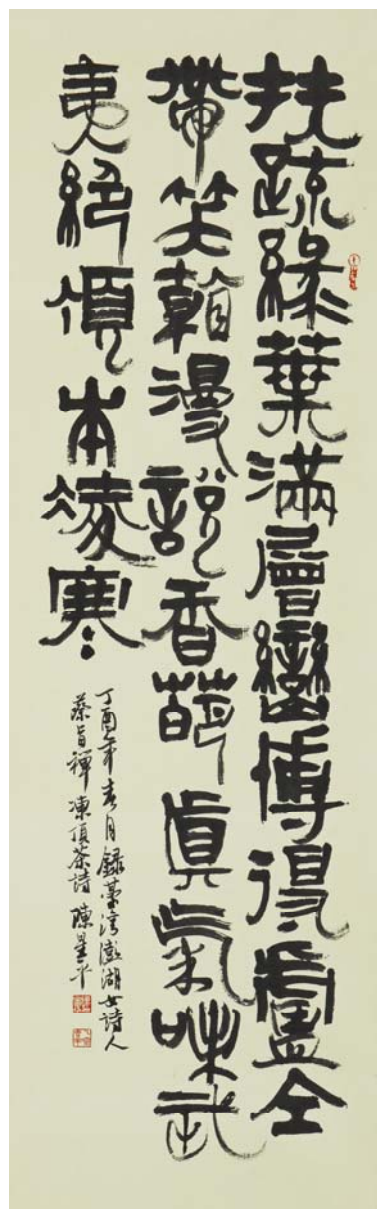 扶疏綠葉滿層巒博得盧仝
帶笑看漫說香真氣味武
夷絕頂本凌寒
丁酉年春月錄臺灣澎湖女詩人
蔡旨禪凍頂茶詩 陳星平